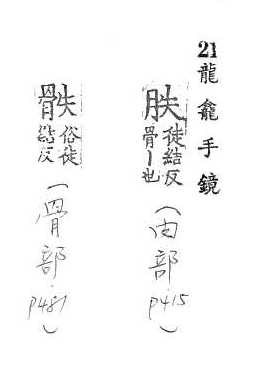 21 龍龕手鏡
胅 徒結反
骨丨也
(肉部
p415)
䏲 俗徒
結反
(骨部
p481)